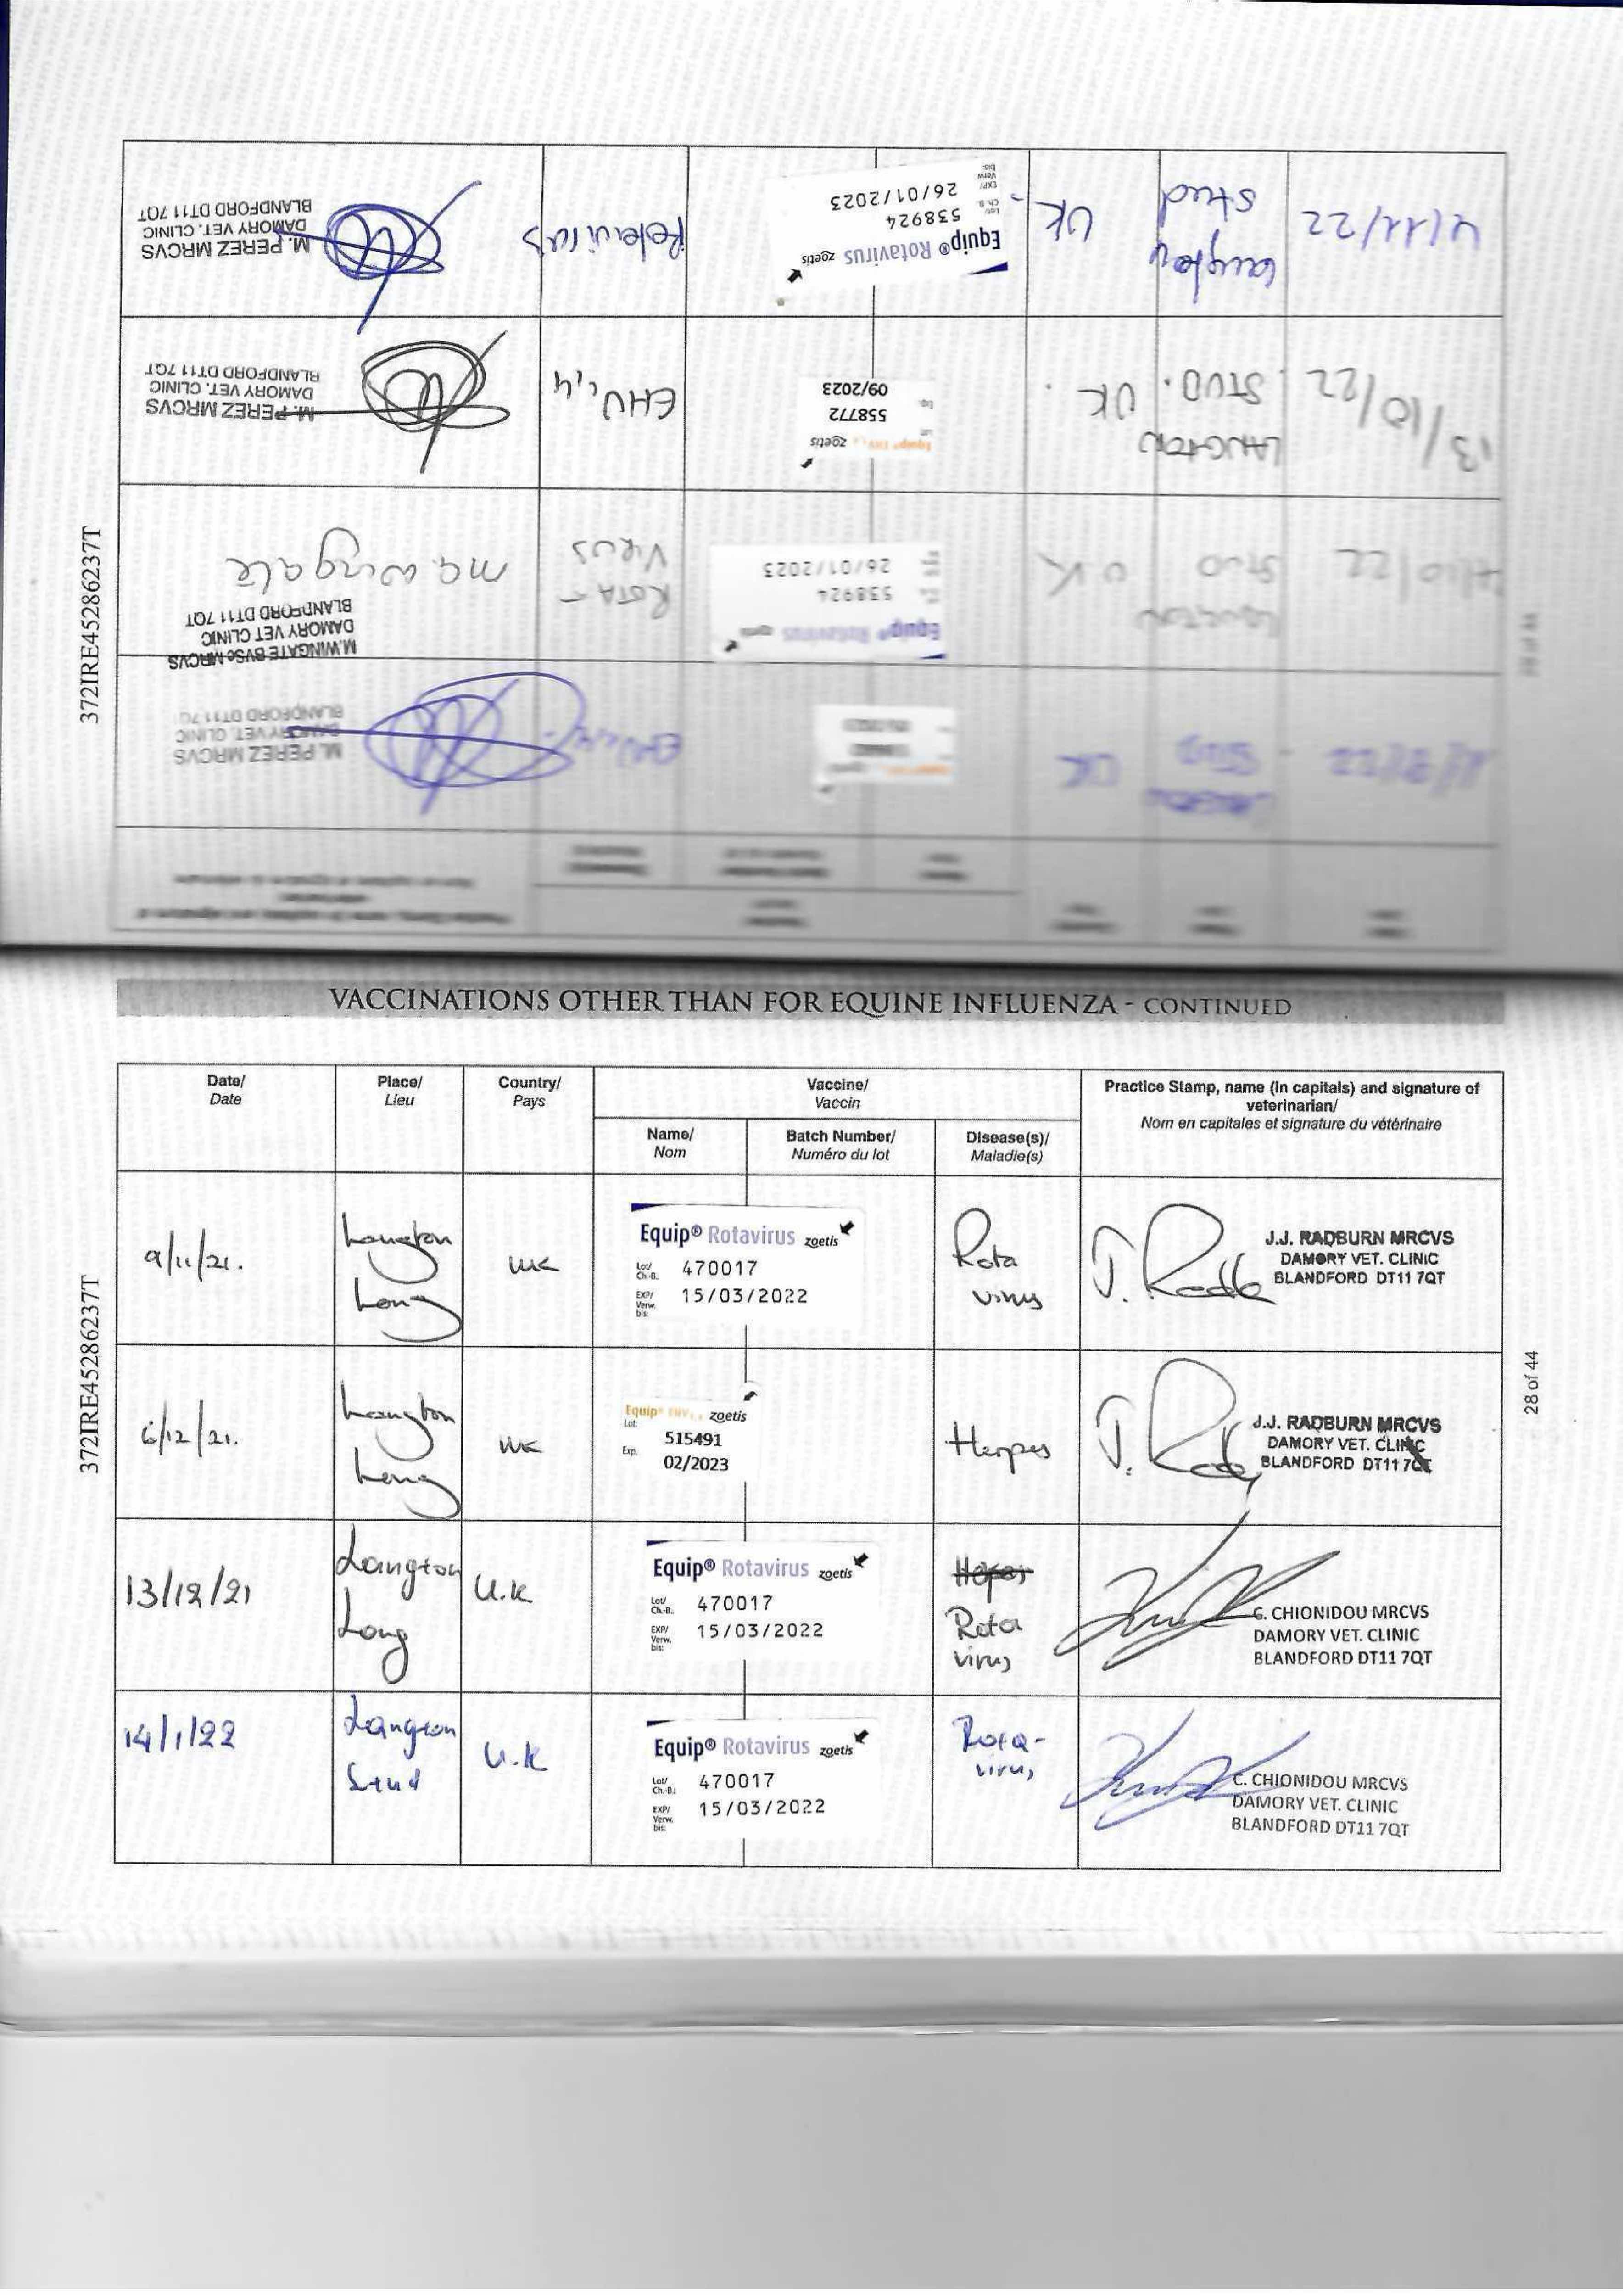 372IRE452862237T
M. PEREZ MRCVS
DAMORY VET. CLINIC
BLANDFORD DT11 7QT
EHV 1,4
UK
M.WINGATE BVSc MRCVS
DAMORY VET CLINIC
BLANDFORD DT11 7QT
/10/22
STUD
UK
Equip® Rotavirus zoetis
538924
26/01/2023
ROTA-
VIRUS
M.A. Wingate
13/10/22
LANGTON
STUD.
UK.
Equip® EHV 1,4 zoetis
558772
09/2023
EHV 1,4
M. PEREZ MRCVS
DAMORY VET. CLINIC
BLANDFORD DT11 7QT
4/11/22
Langton
Stud
UK
Equip® Rotavirus zoetis
Lot/
Ch.-B.
538924
EXP/
Verw.
bis:
26/01/2023
Rotavirus
M. PEREZ MRCVS
DAMORY VET. CLINIC
BLANDFORD DT11 7QT
VACCINATIONS OTHER THAN FOR EQUINE INFLUENZA - CONTINUED
Date/
Date
Place/
Lieu
Country/
Pays
Vaccine/
Vaccin
Name/
Nom
Batch Number/
Numéro du lot
Disease(s)/
Maladie(s)
Practice Stamp, name (In capitals) and signature of
veterinarian/
Nom en capitales et signature du vétérinaire
9/11/21.
Langton
Long
UK
Equip® Rotavirus zoetis
Lot/
Ch.-B. 470017
EXP/
Verw.
bis: 15/03/2022
Rota
virus
J.J. RADBURN MRCVS
DAMORY VET. CLINIC
BLANDFORD DT11 7QT
6/12/21.
Langton
Long
UK
Equip® EHV 1,4 zoetis
Lot:
515491
Exp.
02/2023
Herpes
J.J. RADBURN MRCVS
DAMORY VET. CLINIC
BLANDFORD DT11 7QT
13/12/21
Langton
Long
U.K
Equip® Rotavirus zoetis
Lot/
Ch.-B. 470017
EXP/
Verw.
bis: 15/03/2022
Rota
virus
C. CHIONIDOU MRCVS
DAMORY VET. CLINIC
BLANDFORD DT11 7QT
14/1/22
Langton
Stud
U.K
Equip® Rotavirus zoetis
Lot/
Ch.-B.: 470017
EXP/
Verw.
bis: 15/03/2022
Rota-
virus
C. CHIONIDOU MRCVS
DAMORY VET. CLINIC
BLANDFORD DT11 7QT
372IRE452862237T
28 of 44